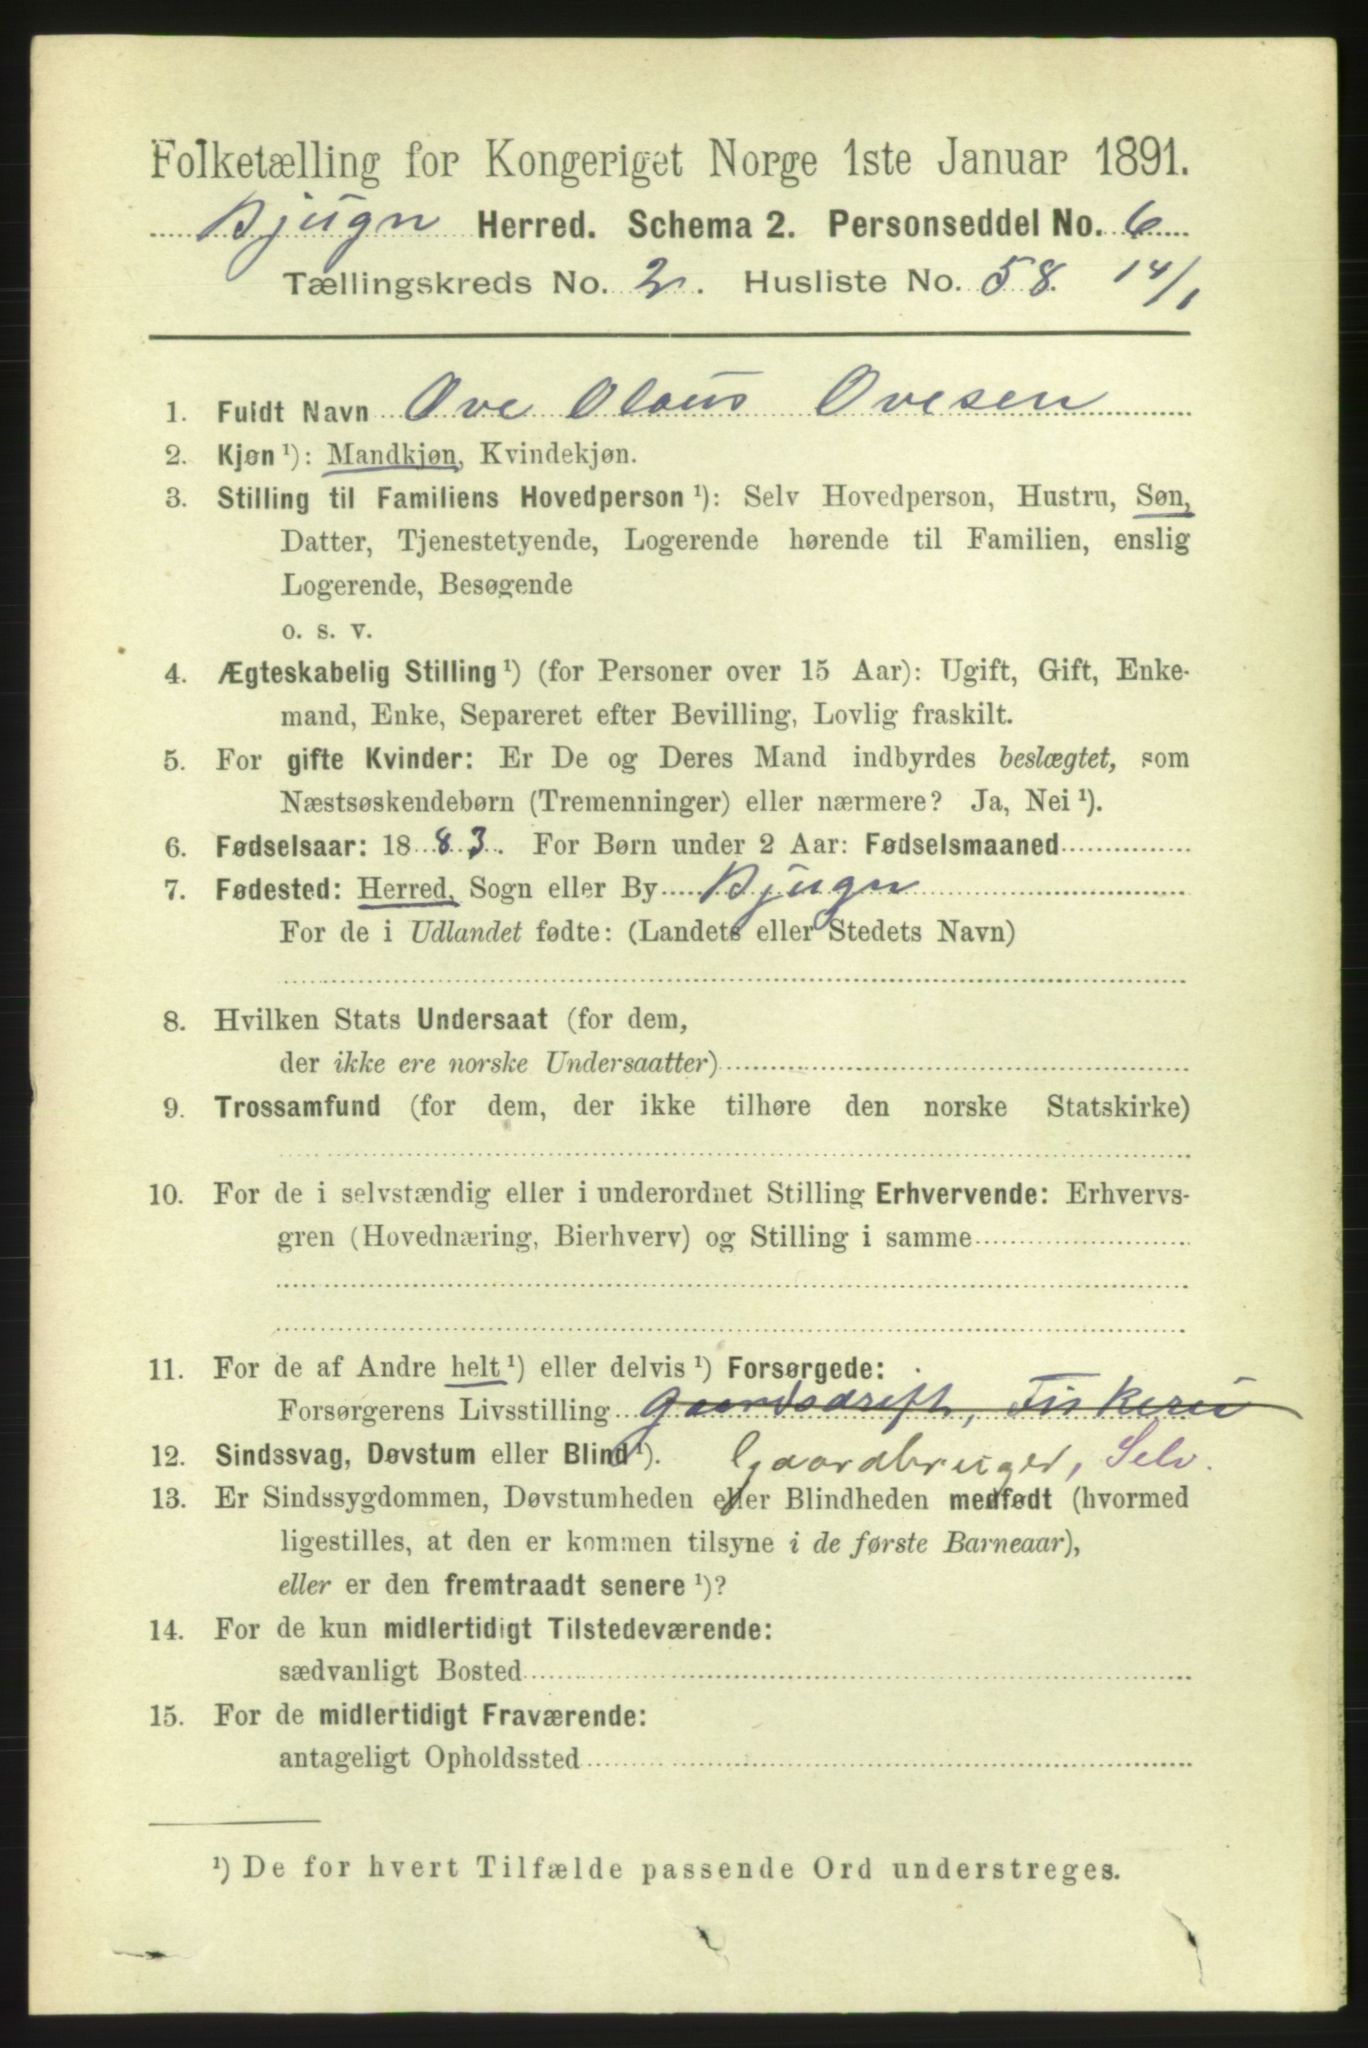 Folketælling for Kongeriget Norge 1ste Januar 1891.
Bjugn Herred. Schema 2. Personseddel No. 6
Tællingskreds No. 2. Husliste No. 58. 14/1
1. Fuldt Navn Ove Olaus Ovesen
2. Kjøn ¹): Mandkjøn, Kvindekjøn.
3. Stilling til Familiens Hovedperson ¹): Selv Hovedperson, Hustru, Søn,
Datter, Tjenestetyende, Logerende hørende til Familien, enslig
Logerende, Besøgende
o. s. v.
4. Ægteskabelig Stilling ¹) (for Personer over 15 Aar): Ugift, Gift, Enke-
mand, Enke, Separeret efter Bevilling, Lovlig fraskilt.
5. For gifte Kvinder: Er De og Deres Mand indbyrdes beslægtet, som
Næstsøskendebørn (Tremenninger) eller nærmere? Ja, Nei ¹).
6. Fødselsaar: 1883. For Børn under 2 Aar: Fødselsmaaned
7. Fødested: Herred, Sogn eller By Bjugn
For de i Udlandet fødte: (Landets eller Stedets Navn)
8. Hvilken Stats Undersaat (for dem,
der ikke ere norske Undersaatter)
9. Trossamfund (for dem, der ikke tilhøre den norske Statskirke)
10. For de i selvstændig eller i underordnet Stilling Erhvervende: Erhvervs-
gren (Hovednæring, Bierhverv) og Stilling i samme
11. For de af Andre helt ¹) eller delvis ¹) Forsørgede:
Forsørgerens Livsstilling gaardsdrift, Fiskeri
12. Sindssvag, Døvstum eller Blind ¹). Gaardbruger, Selv.
13. Er Sindssygdommen, Døvstumheden eller Blindheden medfødt (hvormed
ligestilles, at den er kommen tilsyne i de første Barneaar),
eller er den fremtraadt senere ¹)?
14. For de kun midlertidigt Tilstedeværende:
sædvanligt Bosted
15. For de midlertidigt Fraværende:
antageligt Opholdssted
¹) De for hvert Tilfælde passende Ord understreges.